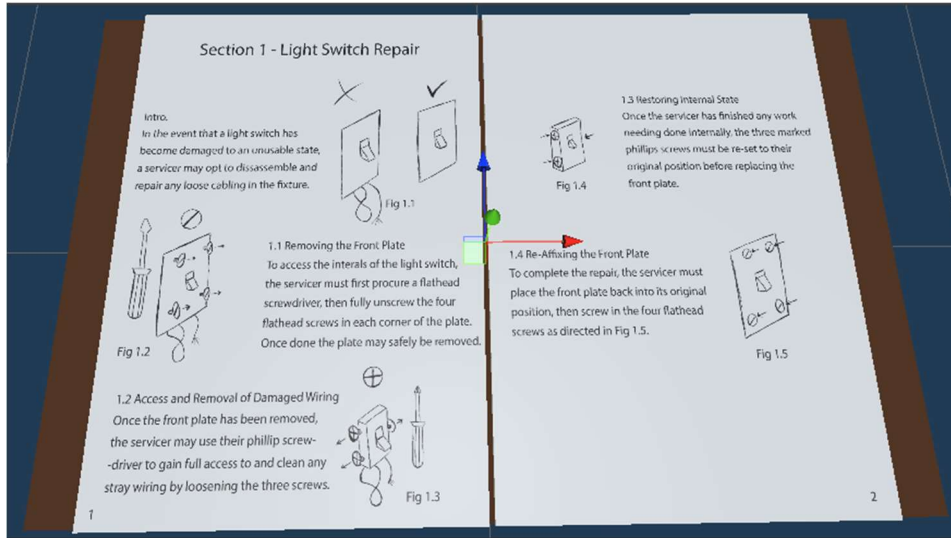 Section 1 - Light Switch Repair
Intro.
In the event that a light switch has
become damaged to an unusable state,
a servicer may opt to dissassemble and
repair any loose cabling in the fixture.
Fig 1.1
1.1 Removing the Front Plate
To access the interals of the light switch,
the servicer must first procure a flathead
screwdriver, then fully unscrew the four
flathead screws in each corner of the plate.
Once done the plate may safely be removed.
Fig 1.2
1.2 Access and Removal of Damaged Wiring
Once the front plate has been removed,
the servicer may use their phillip screw-
-driver to gain full access to and clean any
stray wiring by loosening the three screws.
Fig 1.3
1
1.3 Restoring Internal State
Once the servicer has finished any work
needing done internally, the three marked
phillips screws must be re-set to their
original position before replacing the
front plate.
Fig 1.4
1.4 Re-Affixing the Front Plate
To complete the repair, the servicer must
place the front plate back into its original
position, then screw in the four flathead
screws as directed in Fig 1.5.
Fig 1.5
2